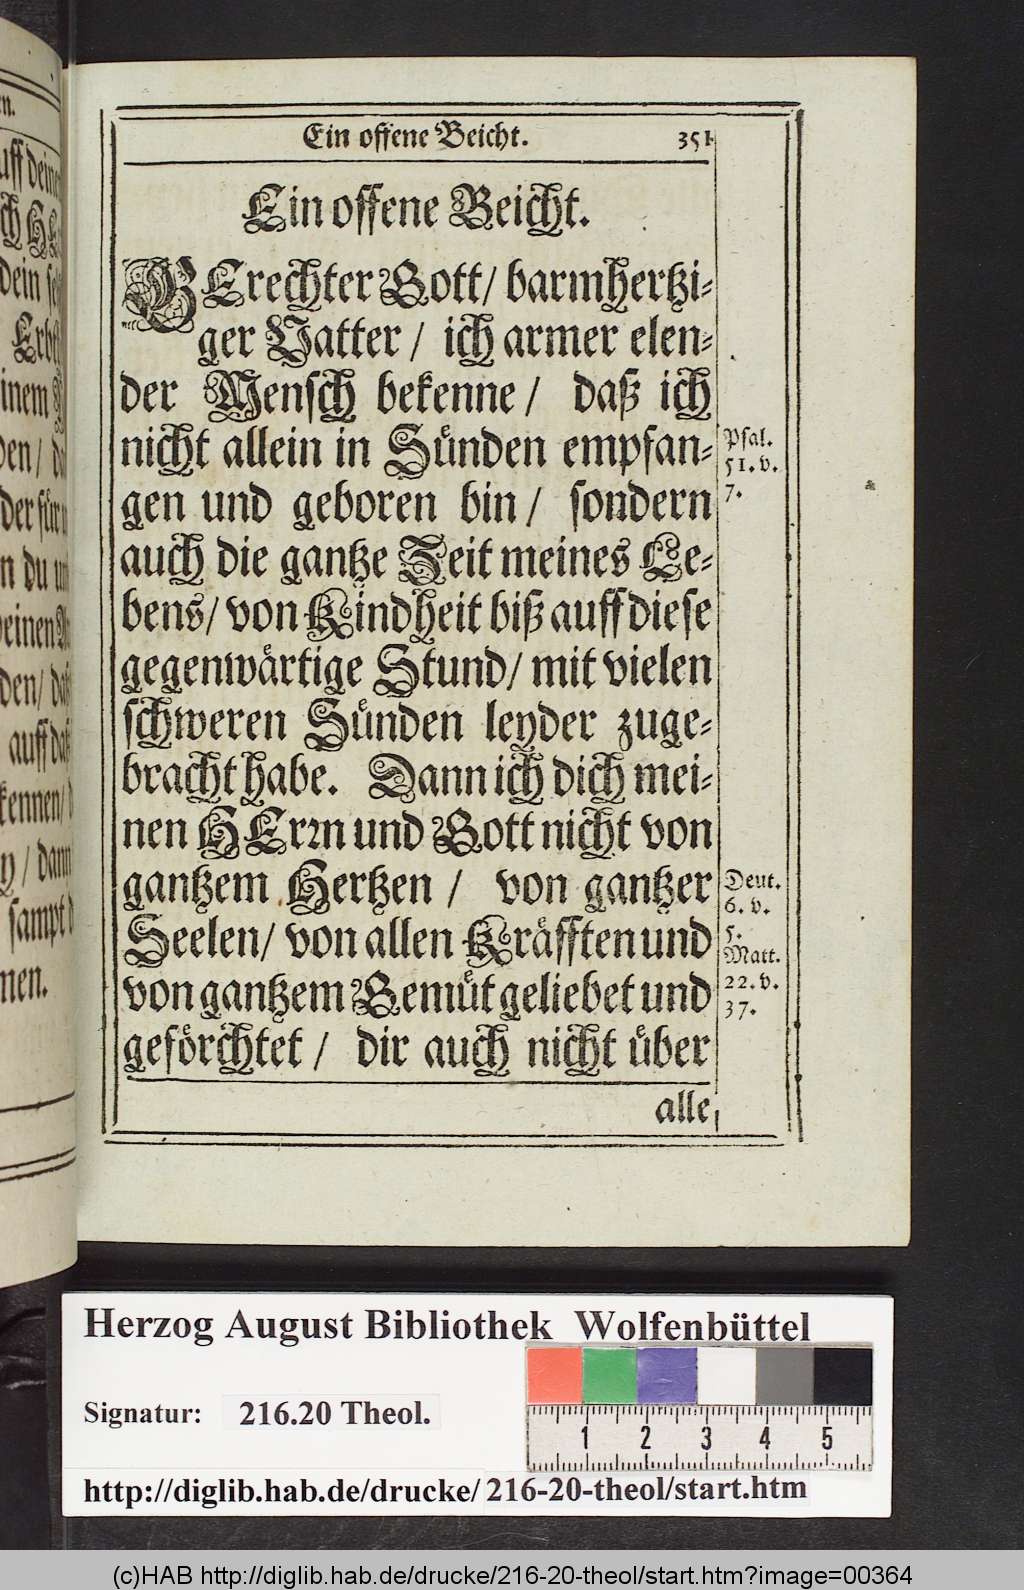 Ein offene Beicht. 351
Ein offene Beicht.
GErechter Gott/ barmhertzi-
ger Vatter / ich armer elen-
der Mensch bekenne / daß ich
nicht allein in Sünden empfan-
gen und geboren bin / sondern
auch die gantze Zeit meines Le-
bens/ von Kindheit biß auff diese
gegenwärtige Stund/ mit vielen
schweren Sünden leyder zuge-
bracht habe. Dann ich dich mei-
nen HErrn und Gott nicht von
gantzem Hertzen / von gantzer
Seelen/ von allen Kräfften und
von gantzem Gemüt geliebet und
geförchtet / dir auch nicht über
alle
Psal.
51. v.
7.
Deut.
6. v.
5.
Matt.
22. v.
37.
Herzog August Bibliothek Wolfenbüttel
Signatur: 216.20 Theol.
1 2 3 4 5
http://diglib.hab.de/drucke/216-20-theol/start.htm
(c)HAB http://diglib.hab.de/drucke/216-20-theol/start.htm?image=00364